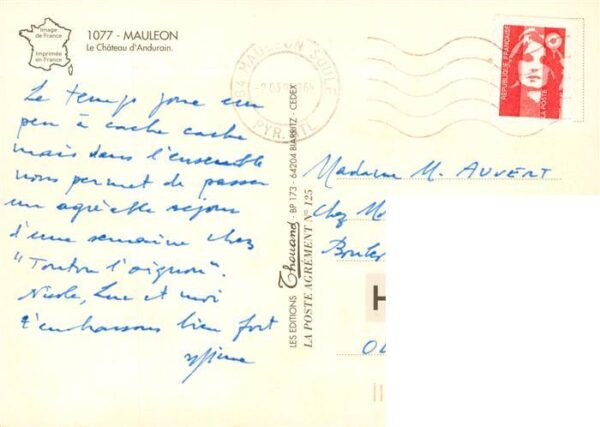 Image
de France
Imprimée
en France
1077 - MAULEON
Le Château d'Andurain.
64 MAULEON SOULE
PYR. ATL
RÉPUBLIQUE FRANÇAISE
LA POSTE
Le temps joue un
peu à cache cache
mais dans l'ensemble
nous permet de passer
un agréable sejour
d'une semaine chez
"Tonton l'aignou".
Nicole, Luc et moi
t'embrassons bien fort
LES EDITIONS Thouand - BP 173 - 64204 BIARRITZ - CEDEX
LA POSTE AGRÉMENT N° 125
Madame M. AUVERT
Chez
H